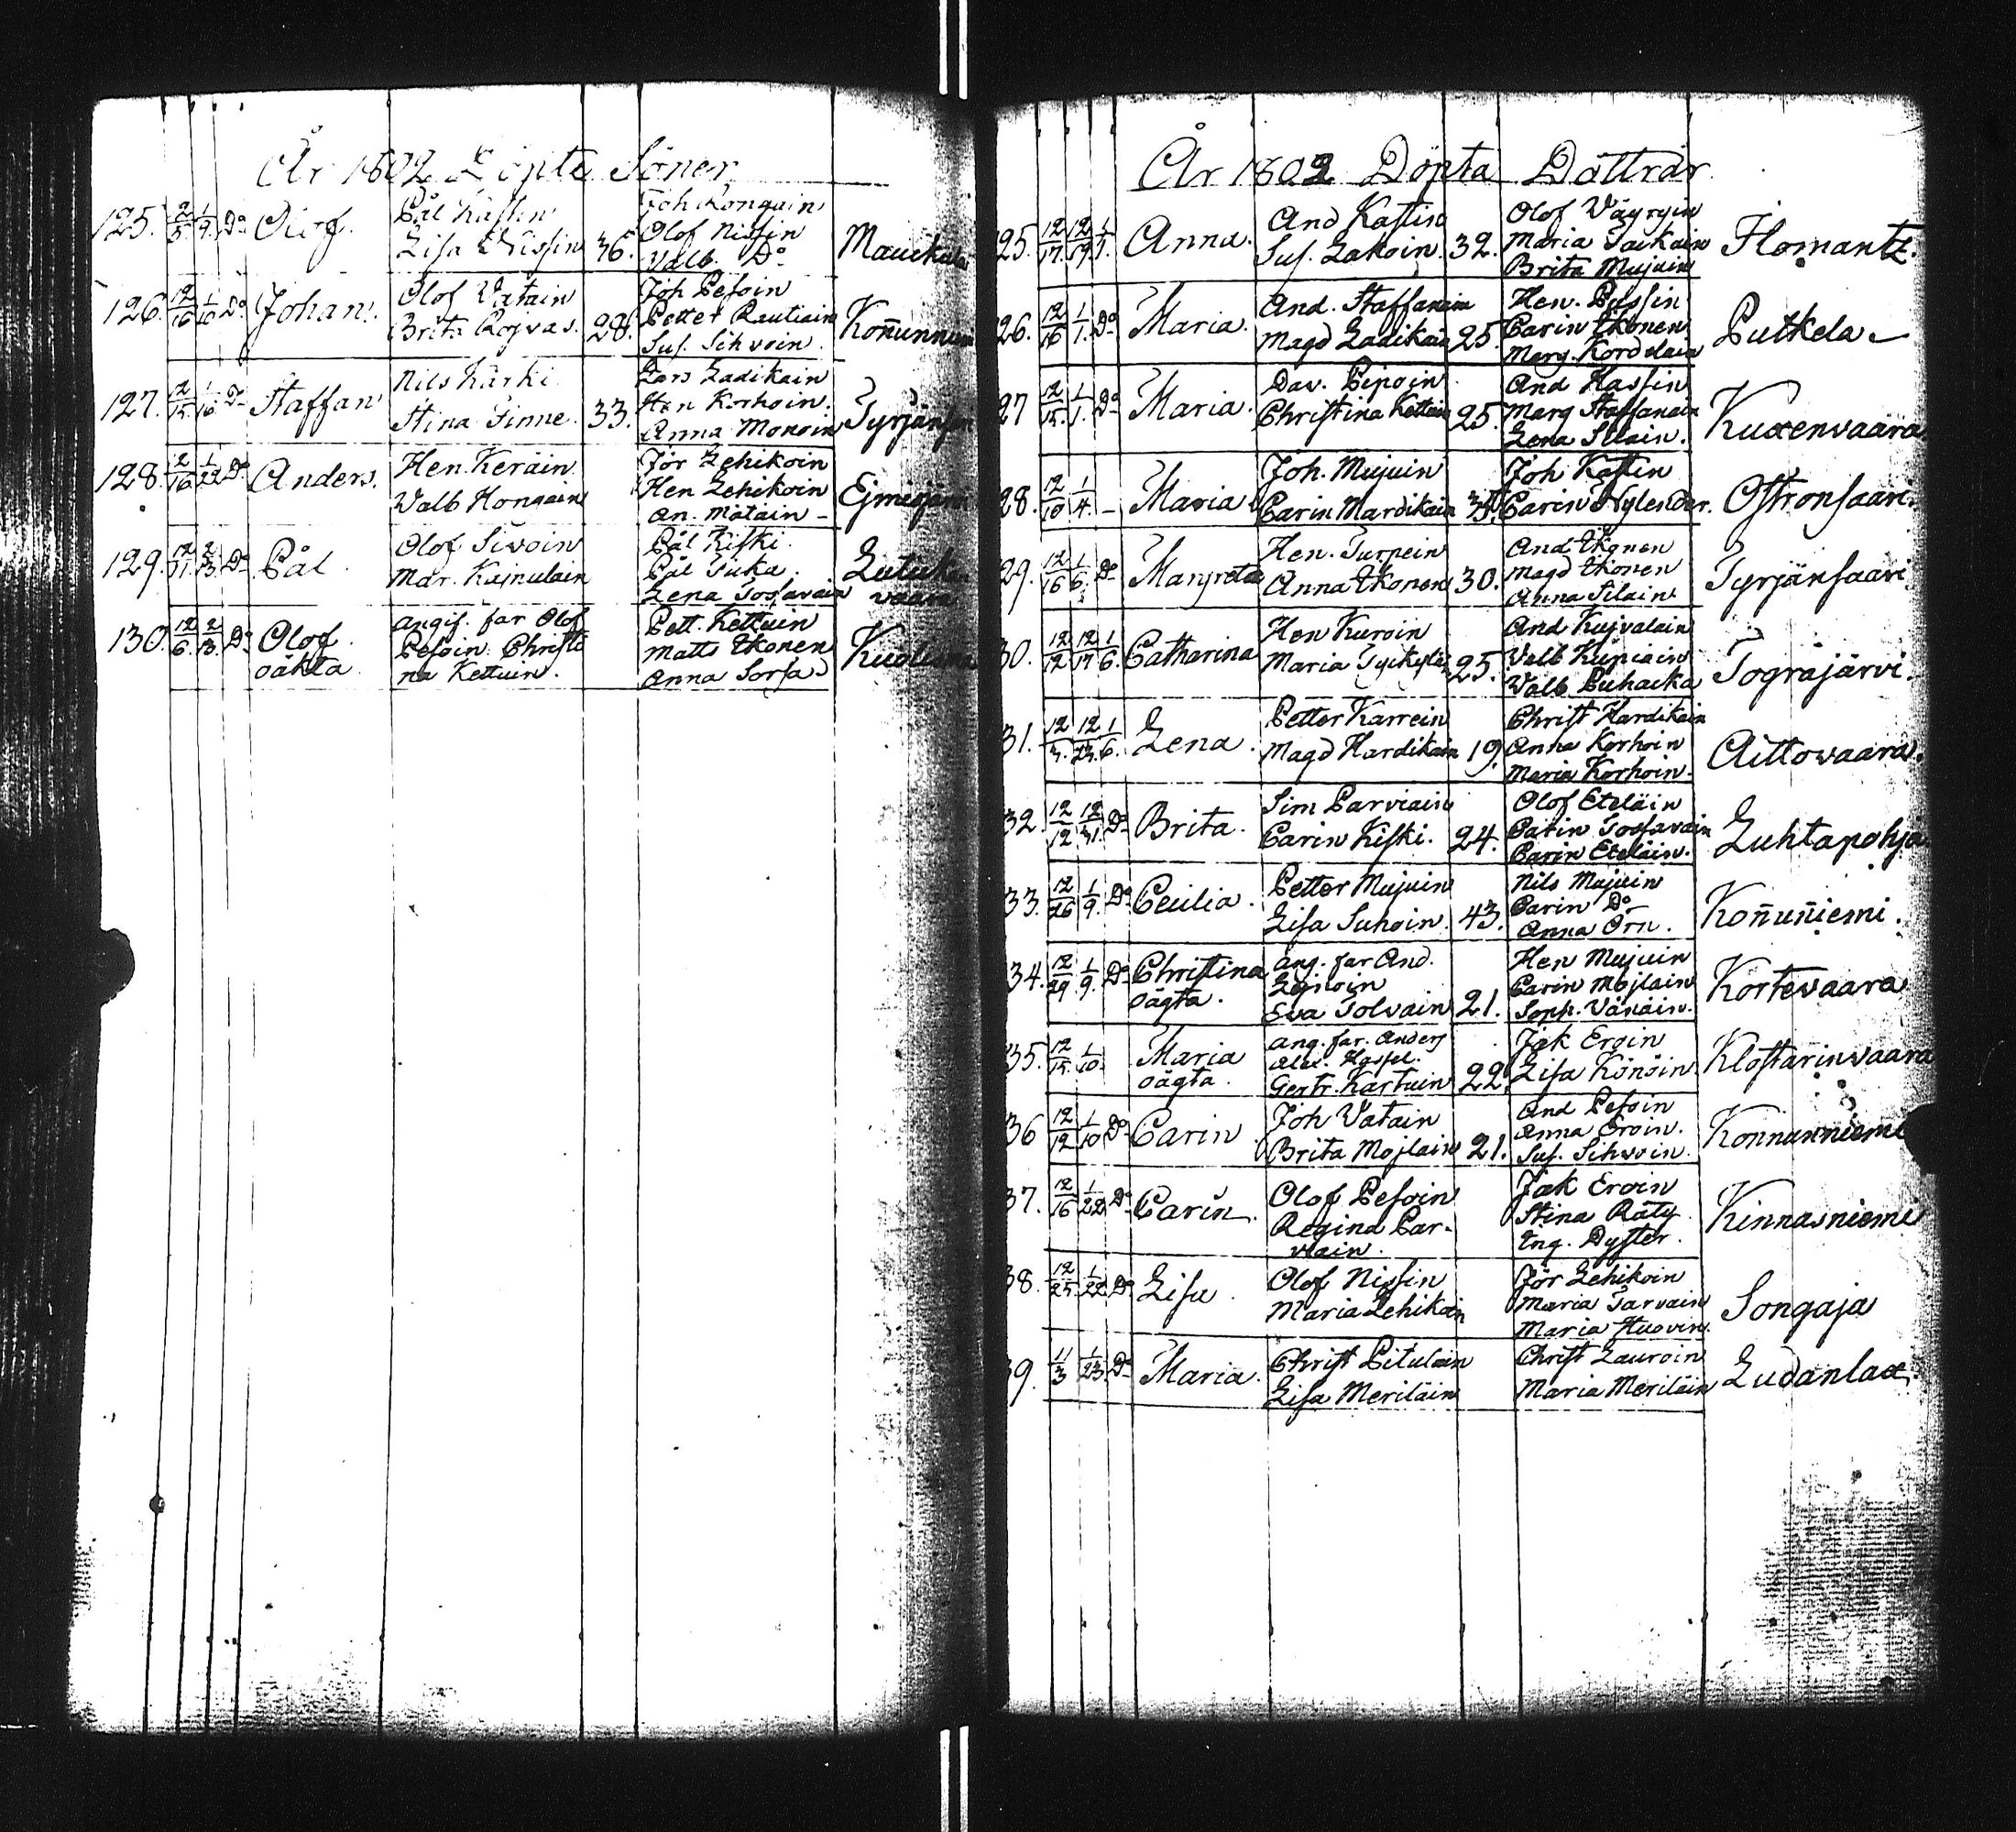 År 1802 Döpte Söner
125. 1/9. Do Olof. Pål Kastin
Lisa Nissin 36.
Joh Konguin
Olof Nissin
Valb. Do
126. 12/16 1/10 Do Johan. Olof Vatain
Brita Rojvas. 28.
Joh Pesoin
Petter Rautiain
Sus. Sihvoin.
Konunniemi
127. Staffan Nils Kärki
Stina Finne. 33.
Lars Ladikain
Hen Korhoin.
Anna Monoin
128. 1/22 Do Anders. Hen. Keräin
Valb Hongain
Jör Lehikoin
Hen Lehikoin
An. Matain -
129. Do Pål. Olof Sivoin
Mar. Kajnulain
Pål Kiski.
Pål Juka.
Lena Tossavain
130. 12/6. 2/13. Do Olof
oäkta
angif. far Olof
Pesoin. Christi
na Kettuin.
Pett. Kettuin
Matts Ikonen
Anna Sorsa
År 1802 Döpta Döttrar.
25. 12/17. 12/19. 1/1. Anna. And Kastin
Sus. Lakoin. 32.
Olof Väyryin
Maria Saikain
Brita Mujuin
Ilomantz.
26. 12/16 1/1. Do Maria. And. Staffanain
Magd Ladikain 25.
Hen. Pussin
Carin Ikonen
Marg. Kordelain
Putkela
27 12/15. 1/1. Do Maria. Dav. Pipoin.
Christina Kettuin 25.
And Hassin
Marg Staffanain
Lena Silain.
Kuxenvaara
28. 12/10 1/4. - Maria Joh. Mujuin
Carin Mardikain
Joh Kastin
Carin Nylender.
Ostronsaari.
29. 12/16 1/6. Do Margreta Hen. Turpein
Anna Ikonen 30.
And Ikonen
Magd Ikonen
Anna Silain.
Tyrjänsaari
30. 12/12 12/17 1/6. Catharina Hen Kuroin
Maria 25.
And Kujvalain
Valb Kupiain
Valb Puhacka
Tograjärvi.
31. 12/3. 12/23. 1/6. Lena. Petter Karrein
Magd Hardikain 19.
Christ Hardikain
Anna Korhoin
Maria Korhoin.
Aittovaara.
32. 12/12 12/31. Do Brita. Sim Parviain
Carin Kiski. 24.
Olof Eteläin
Carin Tossavain
Carin Eteläin.
Luhtapohja
33. 12/26 1/9. Do Cecilia. Petter Mujuin
Lisa Suhoin. 43.
Nils Mujuin
Carin Do
Anna Örn.
Konuniemi.
34. 12/29 1/9. Do Christina
oägta.
ang. far And.
Eva Tolvain 21.
Hen Mujuin
Carin Mojlain
Soph. Vänäin.
Kortevaara
35. 12/15. 1/10. Maria
oägta.
ang. far. Anders
Gertr. Kartuin 22.
Jak Eroin
Lisa Könöin
Klostarinvaara
36 12/12 1/10 Do Carin. Joh Vatain
Brita Mojlain 21.
And Pesoin
Anna Eroin.
Sus. Sihvoin.
Konnunniemi
37. 12/16 1/22 Do Carin. Olof Pesoin
Regina Par-
viain.
Jak Eroin
Stina Räty
Ing. Dyster.
Kinnasniemi
38. 12/25. 1/22 Do Lisa. Olof Nissin
Maria Lehikoin
Jör Lehikoin
Maria Tarvain
Maria Huovin.
Songaja
39. 11/3 1/23. Do Maria. Christ Pitulain
Lisa Meriläin
Christ Lauroin
Maria Meriläin
Ludanlax.